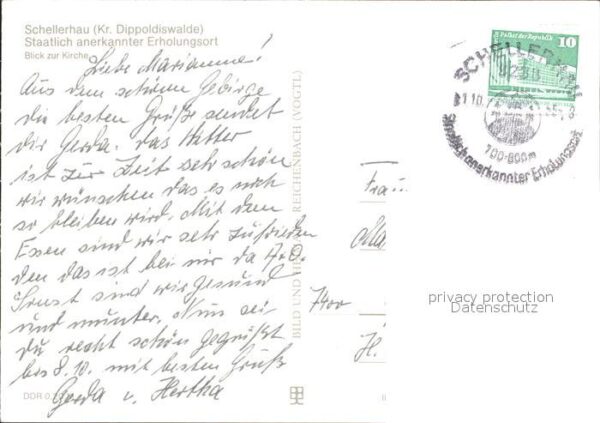 Schellerhau (Kr. Dippoldiswalde)
Staatlich anerkannter Erholungsort
Blick zur Kirche
Liebe Marianne!
Aus dem schönen Gebirge
die besten Grüße sendet
dir Gerda. das Wetter
ist zur Zeit sehr schön
wir wünschen das es noch
so bleiben wird. Mit dem
Essen sind wir sehr zufrieden
den das ist bei mir da A.u.O.
Sonst sind wir gesund
und munter. Nun sei
du recht schön gegrüßt
bis 8.10. mit besten Gruß
Gerda u. Hertha
DDR 0,
BILD UND HEI REICHENBACH (VOGTL)
Palast der Republik
10
DDR
SCHELLERHAU
700-800m
Staatlich anerkannter Erholungsort
Frau
Ma
7400
H.
privacy protection
Datenschutz